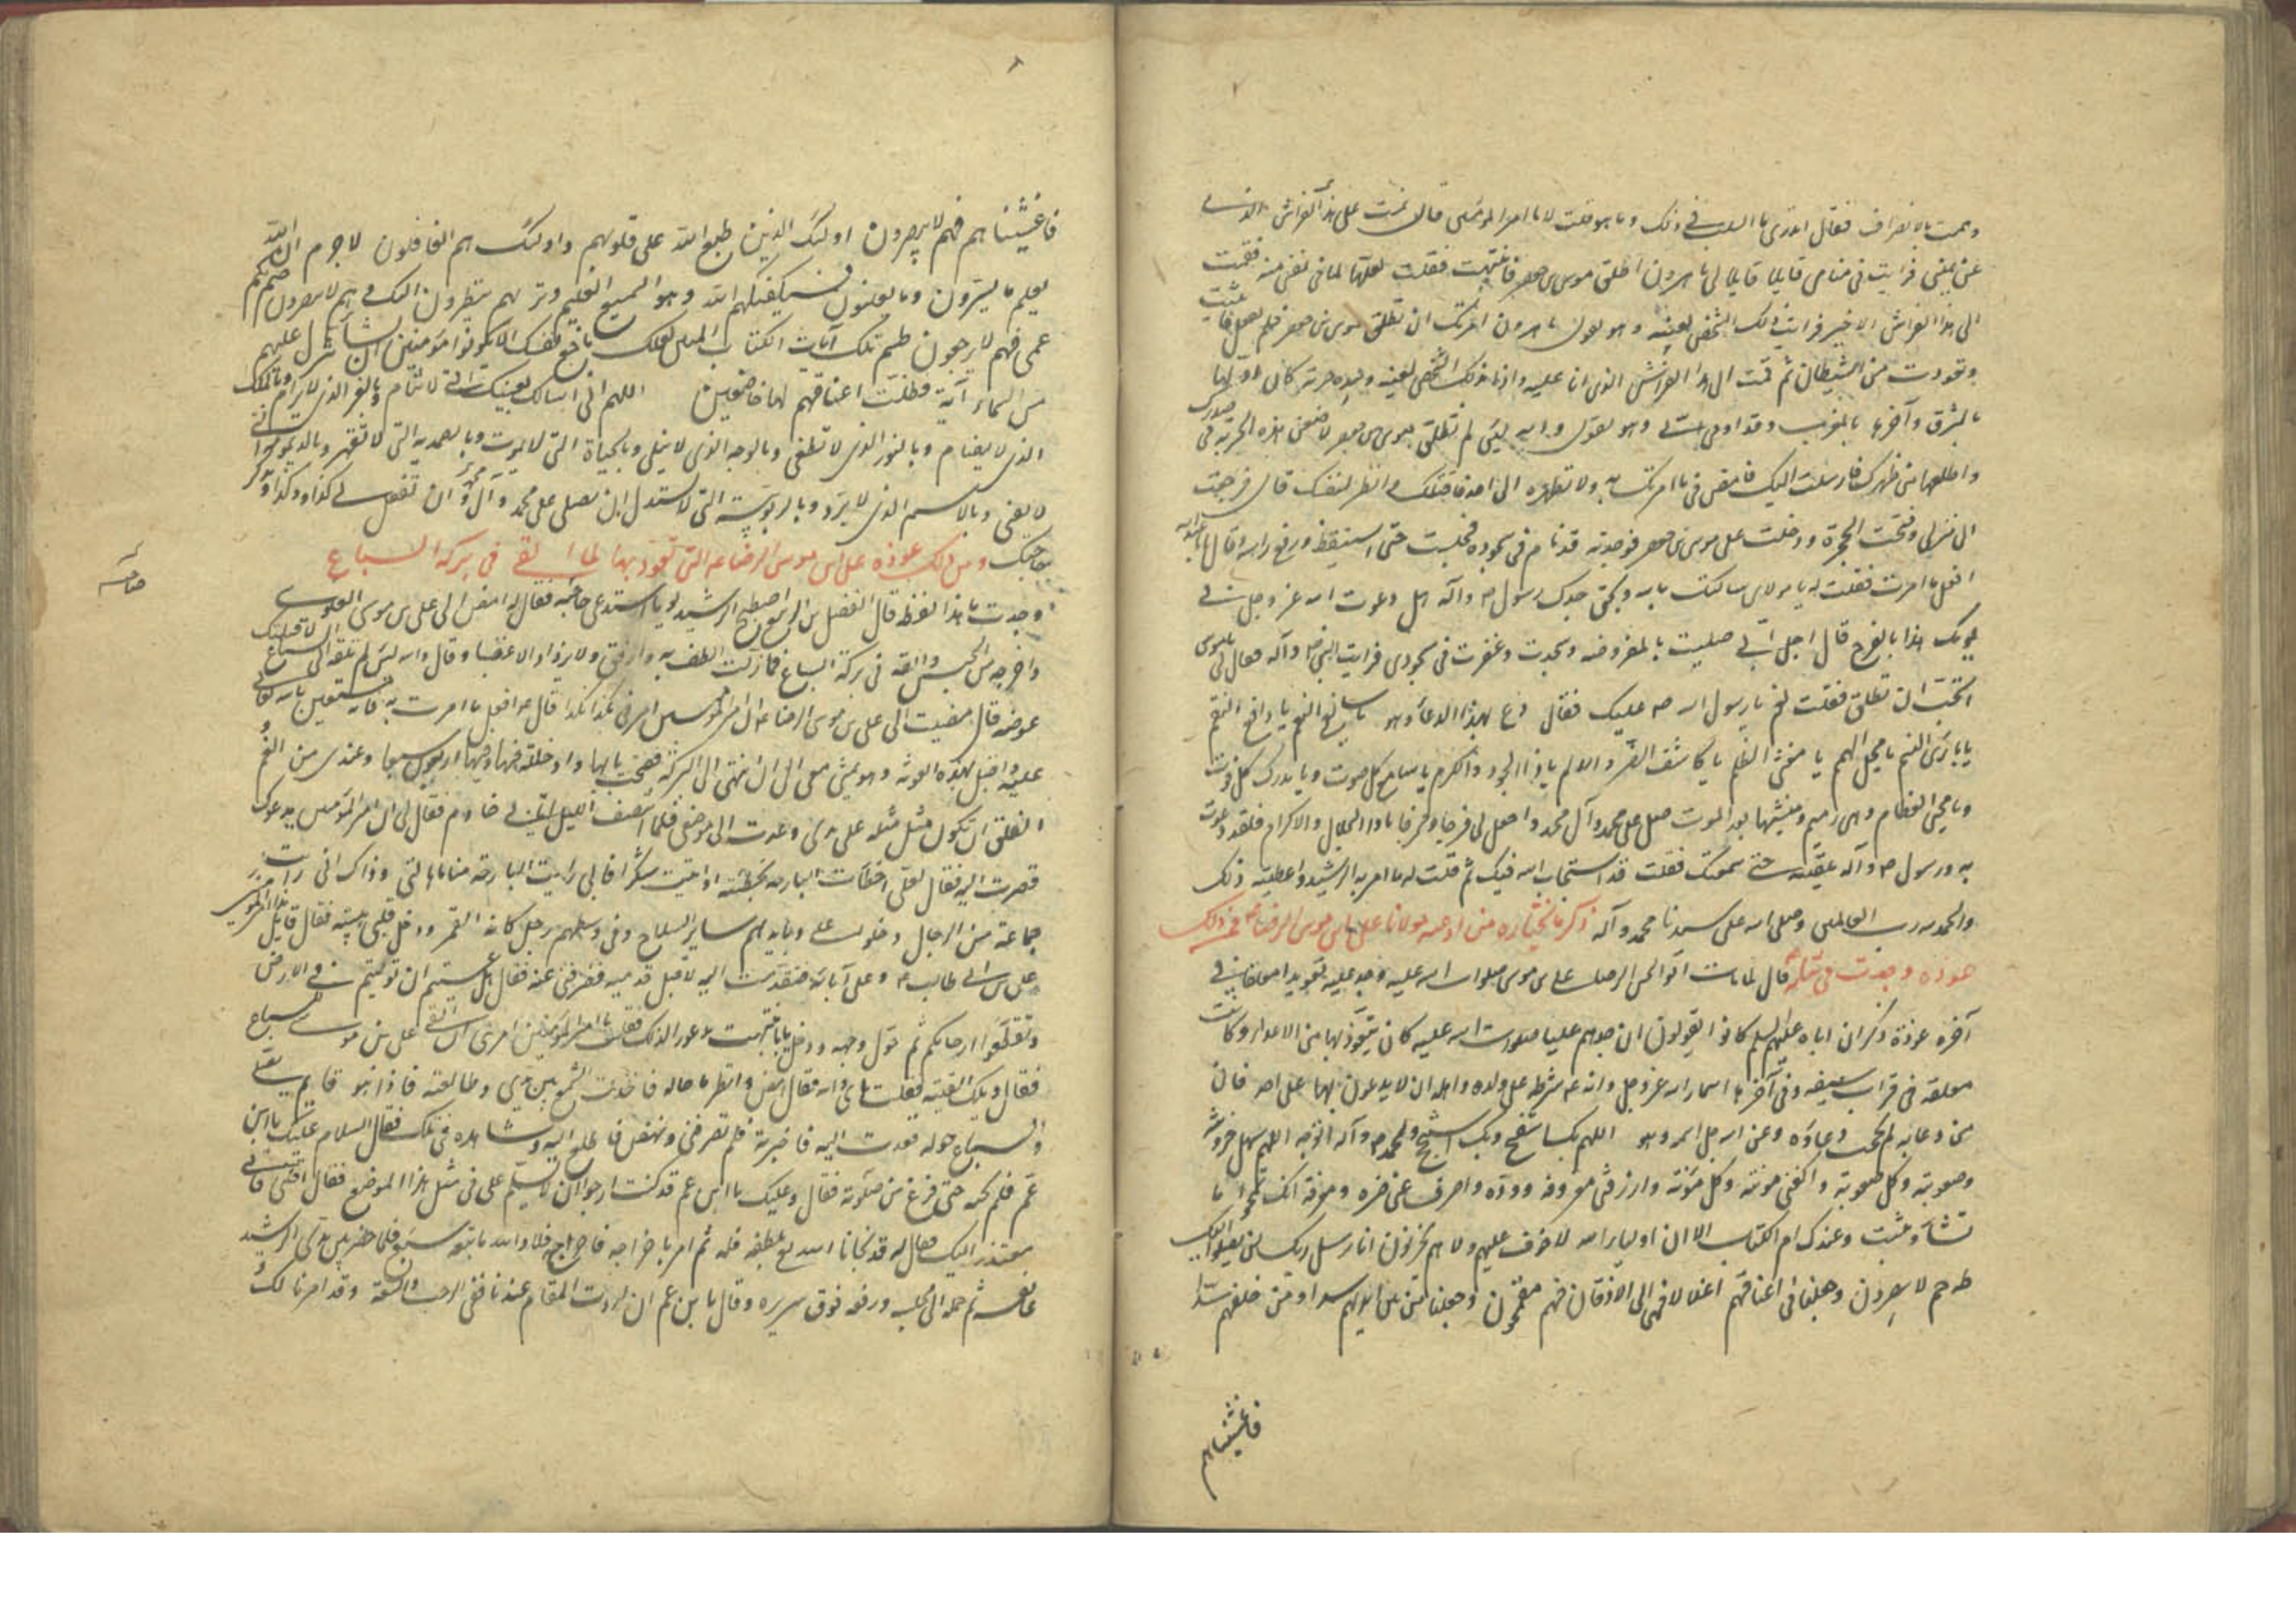 وهممت بالانصراف فقال اتدرى يا في ذلك وما هو قلت لا يا امير المؤمنين قال نمت على هذا الفراش الذى
عن يمينى فرايت فى منامى قايلا يقول لى يا هرون اطلق موسى بن جعفر فانتبهت فقلت لعلها لما فى نفسى منه فقمت
الى هذا الفراش الاخير فرايت ذلك الشخص بعينه وهو يقول يا هرون امرتك ان تطلق موسى بن جعفر فلم تفعل
وتعوذت من الشيطان ثم قمت الى هذا الفراش الذى انا عليه واذا بذلك الشخص بعينه وبيده حربة كان اولها
بالمشرق وآخرها بالمغرب وقد اومى الى وهو يقول والله لئن لم تطلق موسى بن جعفر لاضعن هذه الحربة فى صدرك
واطلعها من ظهرك فارسلت اليك فامض فى ما امرتك به ولا تظهره الى احد فاقتلك وانظر لنفسك قال فرجعت
الى منزلى وفتحت الحجرة ودخلت على موسى بن جعفر فوجدته قد نام فى سجوده فجلست حتى استيقظ ورفع راسه وقال يا
افعل ما امرت فقلت له يا مولاى سالتك بالله وبحق جدك رسول الله ص وآله هل دعوت الله عز وجل فى
يومك هذا بالفرج قال اجل انى صليت المفروضة وسجدت وغفوت فى سجودى فرايت النبى ص وآله فقال لى يا موسى
اتحب ان تطلق فقلت نعم يا رسول الله ص عليك فقال ادع بهذا الدعاء وهو يا سابغ النعم يا دافع النقم
يا بارئ النسم يا مجلى الهمم يا مغشى الظلم يا كاشف الضر والالم يا ذا الجود والكرم يا سامع كل صوت ويا مدرك كل فوت
ويا محيى العظام وهى رميم ومنشئها بعد الموت صل على محمد وآل محمد واجعل لى فرجا ومخرجا يا ذا الجلال والاكرام فلقد دعوت
به ورسول الله ص وآله يلقننيه حتى سمعتك فقلت قد استجاب الله فيك ثم قلت له ما امر به الرشيد واعطيته ذلك
والحمد لله رب العالمين وصلى الله على سيدنا محمد وآله ذكر ما نختاره من ادعية مولانا على بن موسى الرضا ع فمن ذلك
عوذة وجدت فى ثيابه قال لما مات ابو الحسن الرضا على بن موسى صلوات الله عليه وجد عليه تعويذ معلق فى
آخره عوذة ذكر ان اباه عليهم السلم كانوا يقولون ان جدهم عليا صلوات الله عليه كان يتعوذ بها من الاعداء وكانت
معلقة فى قراب سيفه وفى آخرها اسماء الله عز وجل وانه ع شرط على ولده واهله ان لا يدعون بها على احد فان
من دعا به لم يحجب دعاؤه وعن الله جل اسمه وهو اللهم بك استفتح وبك استنجح وبمحمد ص وآله اتوجه اللهم سهل لى حزونته
وصعوبته وكل صعوبة واكفنى مؤنته وكل مؤنة وارزقنى معروفه ووده واصرف عنى ضره ومعرته انك تمحو ما
تشاء وتثبت وعندك ام الكتاب الا ان اولياء الله لا خوف عليهم ولا هم يحزنون انا رسل ربك لن يصلوا اليك
طه حم لا يبصرون وجعلنا فى اعناقهم اغلالا فهى الى الاذقان فهم مقمحون وجعلنا من بين ايديهم سدا ومن خلفهم سدا
فاغشيناهم
فاغشيناهم فهم لا يبصرون اولئك الذين طبع الله على قلوبهم واولئك هم الغافلون لا جرم ان الله
يعلم ما يسرون وما يعلنون فسيكفيكهم الله وهو السميع العليم وتريهم ينظرون اليك وهم لا يبصرون صم بكم
عمى فهم لا يرجعون طسم تلك آيات الكتاب المبين لعلك باخع نفسك الا يكونوا مؤمنين ان نشاء ننزل عليهم
من السماء آية فظلت اعناقهم لها خاضعين اللهم انى اسالك بعينك التى لا تنام وبالعز الذى لا يرام وبالملك
الذى لا يضام وبالنور الذى لا يطفى وبالوجه الذى لا يبلى وبالحياة التى لا تموت وبالصمدية التى لا تقهر وبالديمومة التى
لا تفنى وبالاسم الذى لا يرد وبالربوبية التى لا تستذل ان تصلى على محمد وآل محمد وان تفعل لى كذا وكذا وتذكر
حاجتك ومن ذلك عوذة على بن موسى الرضا ع التى تعوذ بها لما القى فى بركة السباع
وجدت ما هذا لفظه قال الفضل بن الربيع اصطبح الرشيد يوما استدعى حاجبه فقال له امض الى على بن موسى العلوى
واخرجه من الحبس والقه فى بركة السباع فما زلت الطف به وارفق ولا يزداد الا غضبا وقال والله لئن لم تلقه الى السباع لالقينك
عوضه قال فمضيت الى على بن موسى الرضا ع ان امير المؤمنين امرنى بكذا وكذا قال ع افعل ما امرت به فانى مستعين بالله تعالى
عليه واقبل بهذه العوذة وهو يمشى معى الى ان انتهى الى البركة ففتحت بابها وادخلته فيها وفيها اربعون سبعا وعندى من الغم و
القلق ان يكون قتل مثله على يدى وعدت الى موضعى فلما انتصف الليل اتانى خادم فقال لى ان امير المؤمنين يدعوك
فصرت اليه فقال لعلى اخطات البارحة بخطيئة او اتيت منكرا فانى رايت البارحة مناما هالنى وذاك انى رايت
جماعة من الرجال دخلوا على وبايديهم ساير السلاح وفى وسطهم رجل كانه القمر ودخل قلبى هيبته فقال قايل هذا امير المؤمنين
على بن ابى طالب ع وعلى آبائه فتقدمت اليه لاقبل قدميه فصرفنى عنه فقال هل عسيتم ان توليتم ان تفسدوا فى الارض
وتقطعوا ارحامكم ثم حول وجهه ودخل بابا فانتبهت مذعورا لذلك فقلت يا امير المؤمنين امرتنى ان القى على بن موسى للسباع
فقال ويلك القيته فقلت اى والله فقال امض وانظر ما حاله فاخذت الشمع بين يدى وطالعته فاذا هو قايم يصلى
والسباع حوله فعدت اليه فاخبرته فلم يصدقنى ونهض فاطلع اليه وشاهده فى تلك فقال السلام عليك يا ابن
عم فلم يجبه حتى فرغ من صلوته فقال وعليك يا ابن عم قد كنت ارجو ان لا تسلم على فى مثل هذا الموضع فقال اقلنى فانى
معتذر اليك فقال له قد نجانا الله تع بلطفه فله ثم امر باخراجه فاخرج فلا والله ما تبعه سبع فلما حضر بين يدى الرشيد
عانقه ثم حمله الى مجلسه ورفعه فوق سريره وقال يا بن عم ان اردت المقام عندنا ففى الرحب والسعة وقد امرنا لك و